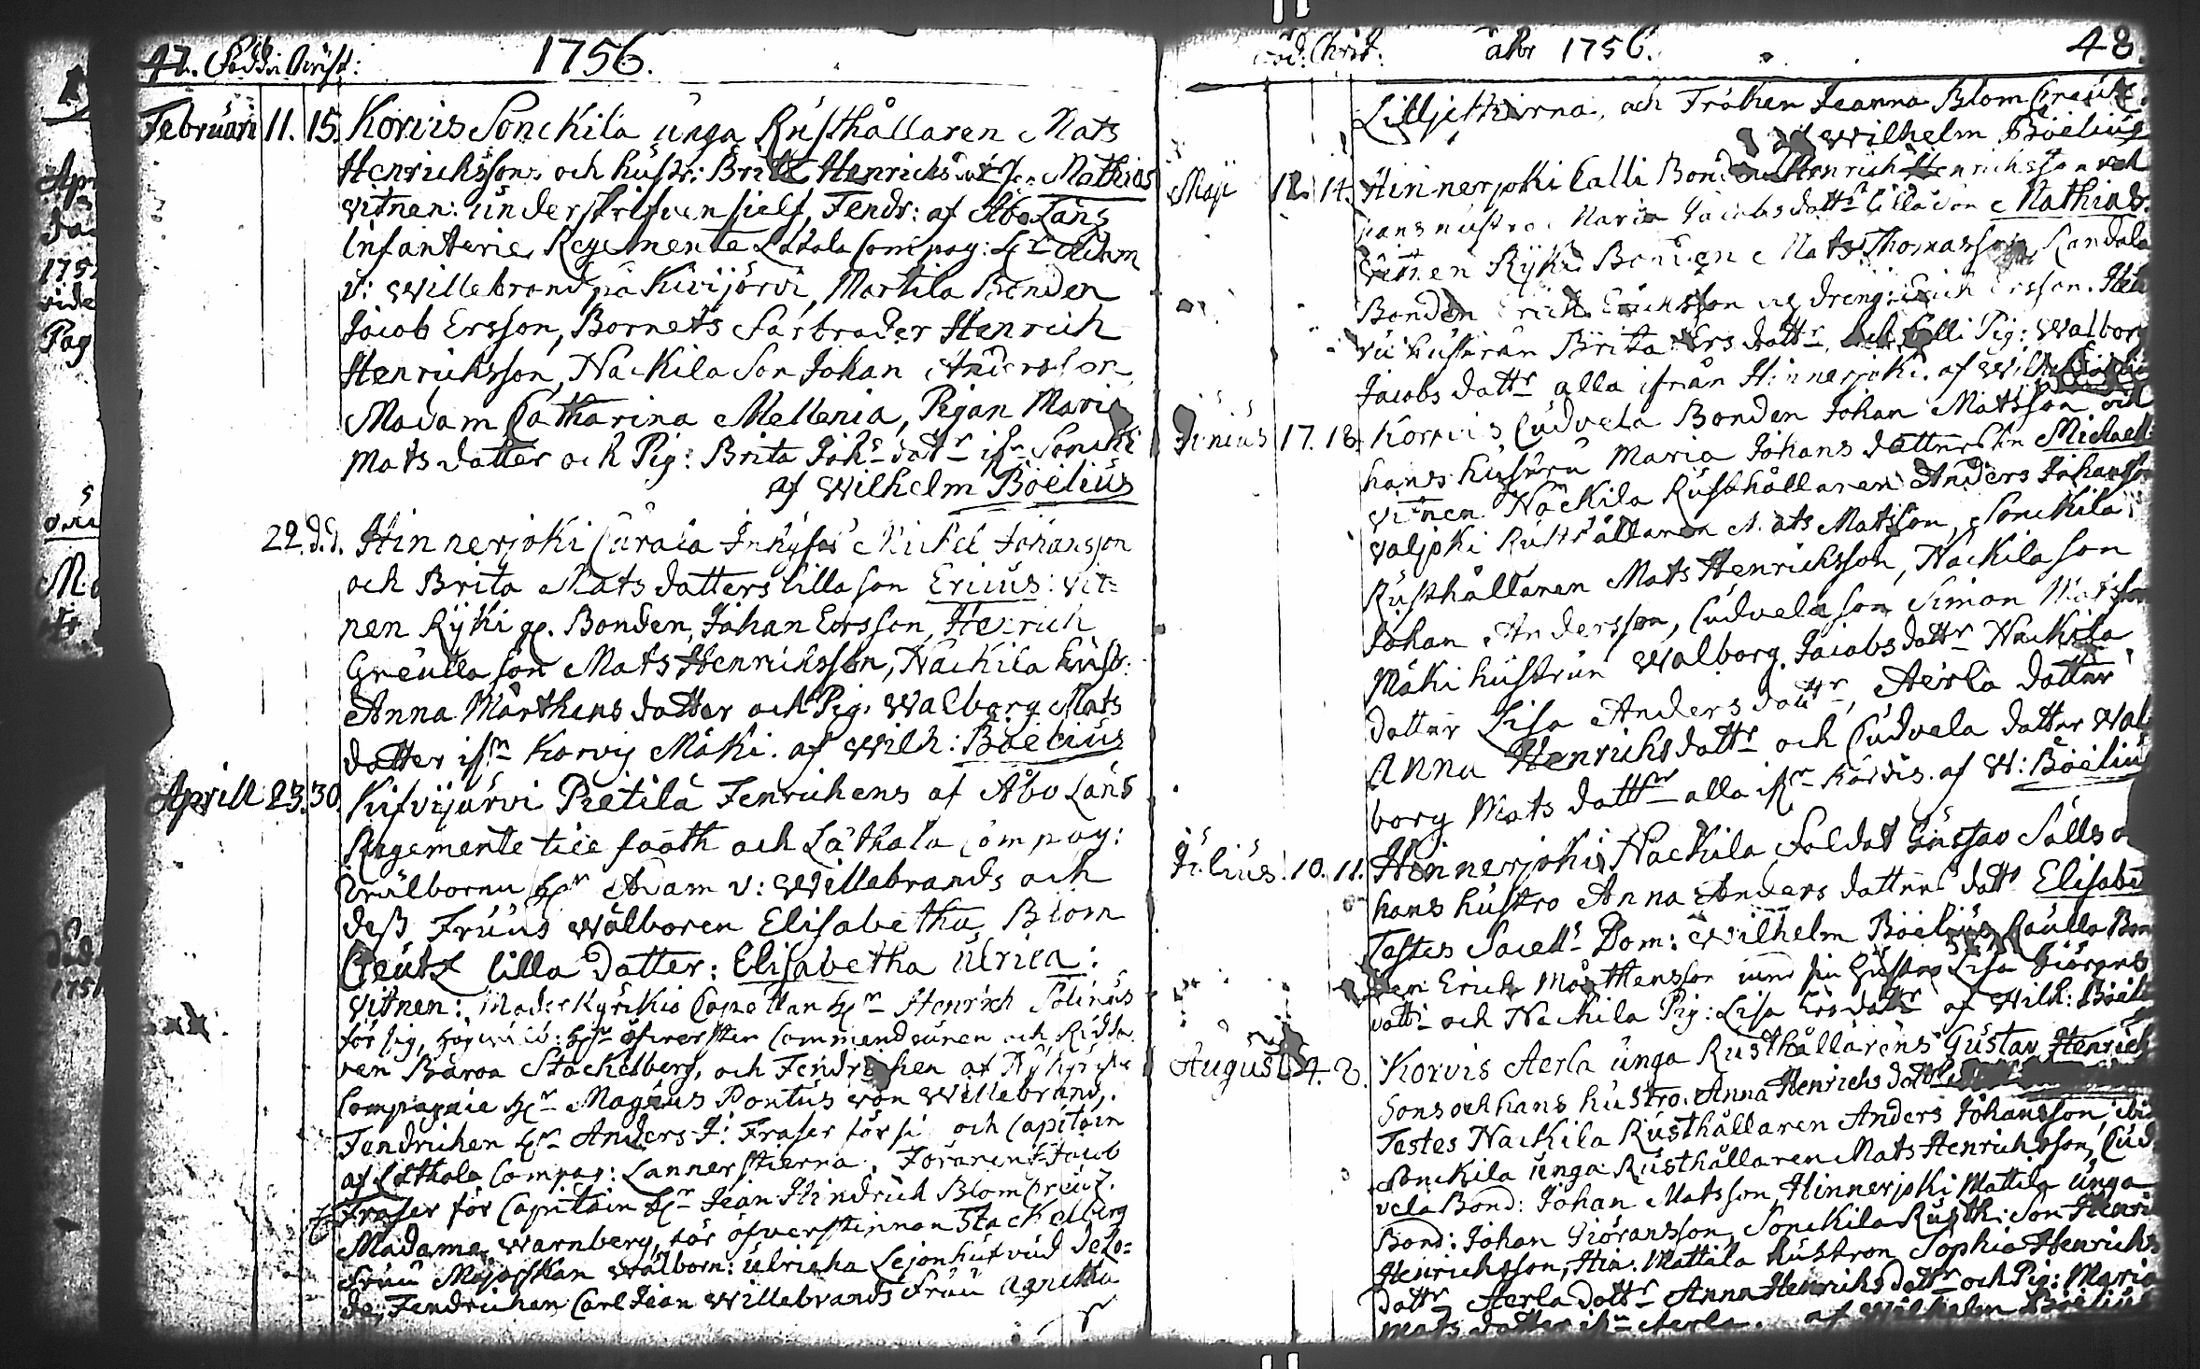 47. Född: Christ:
1756.
Februari 11. 15. Korvis Sonckila unga Rusthållaren Mats
Henrichssons och hustr: Brita Henrichs dotters Son Mathias
vitnen: underskrifven sielf, Fendr: af Åbo Läns
Infanterie Regemente Låthala Compag: Hr Adam
v: Willebrand på Kivijärvi, Martila Bonden
Jacob Ersson, Barnets Farbroder Henrich
Henrichsson, Nackila Son Johan Andersson,
Madam Catharina Mellenia, Pigan Maria
Mats datter och Pig: Brita Johs datr ifrn Soncki
af Wilhelm Böelius
22. d.d. Hinnerjoki Inhyses Michel Johansson
och Brita Mats datters lilla son Ericus: vit=
nen Ryki gl. Bonden, Johan Ersson, Henrich
Greulla son Mats Henrichsson, Nackila hustr:
Anna Mårthens datter och Pig: Walborg Mats
datter ifrn Korvis Mäki. af Wilh: Böelius
Aprill 23. 30. Kifvijärvi Pietilä Fenrichens af Åbo Läns
Regemente till footh och Låthala Compag:
Välborne Hr Adam v: Willebrands och
dess Fruus wälboren Elisabetha Blom
Creutz lilla datter: Elisabetha Ulrica:
vitnen: Capellan Hr Henrich Polinus
för sig, Hr öfversten Commendeuren och Ridda
ren Baron Stackelberg, och Fendrichen af
Compagnie Hr Magnus Pontus von Willebrand,
Fendrichen Hr Anders J: Fraser för och Capitain
af Låthala Compag: Lannerstierna. Föraren Jacob
Fraser för Capitain Hr Jean Hindrich Blom Creutz.
Madama Warnberg, för öfverstinnan Stackelberg
Fruu Majorskan Wälborn: Ulricha Lejonhufvud
Fendrichen Carl Jean Willebrands Fruu Agnetha
Föd: Christ: åhr 1756. 48
Lilljestierna, och Fröken Jeanna Blom Creutz.
af Wilhelm Böelius
Maji 12. 14. Hinnerjoki Calli Bonden Henrich Henrichsson och
hans hustru Maria Jacobs dattr lilla son Mathias.
vitnen Ryki Bonden Mats Thomasson, Randala
Bonden Erich Erichsson dreng: Erich Ersson.
hustrun Brita Ers dattr, och Calli Pig: Walborg
Jacobs dattr alla ifrån Hinnerjoki. af
Junius 17. 18. Korvis Cudvela Bonden Johan Matsson och
hans hustru Maria Johans datters Son Michael
vitnen Nackila Rusthållaren Anders Johansson
Valjoki Rusthållaren Mats Matsson, Sonckila
Rusthållaren Mats Henrichsson, Nackila son
Johan Andersson, Cudvela son Simon Matsson
Mäki hustrun Walborg Jacobs dattr Nackila
datter Lisa Anders dattr, Aerla datter
Anna Henrichs dattr och Cudvela datter Wal
borg Mats dattr alla ifrn Korvis. af W: Böelius
Julius 10. 11. Hinnerjoki Nackila Soldat Gustav
hans hustro Anna Anders datters datt Elisabet
Testes Dom: Wilhelm Böelius, Raulla Bon
den Erich Mårthensson med sin hustro Lisa Giörans
dattr och Nackila Pig: Lisa Ers dattr af Wilh: Böeli
August 4. 8. Korvis Aerla unga Rusthållarens Gustav Henrich
Sons och hans hustro: Anna Henrichs dattr
Testes Nackila Rusthållaren Anders Johansson,
Sonckila unga Rusthållaren Mats Henrichsson, Cud
vela Bond: Johan Matsson, Hinnerjoki Mattila unga
Bond: Johan Giöransson, Sonckila Rusth: Son Henri
Henrichsson, Hin: Mattila hustron Sophia Henrichs
dattr Aerla dottr Anna Henrichs dattr och Pig: Maria
Mats datter ifrn Aerla. af Wilhelm Böelius